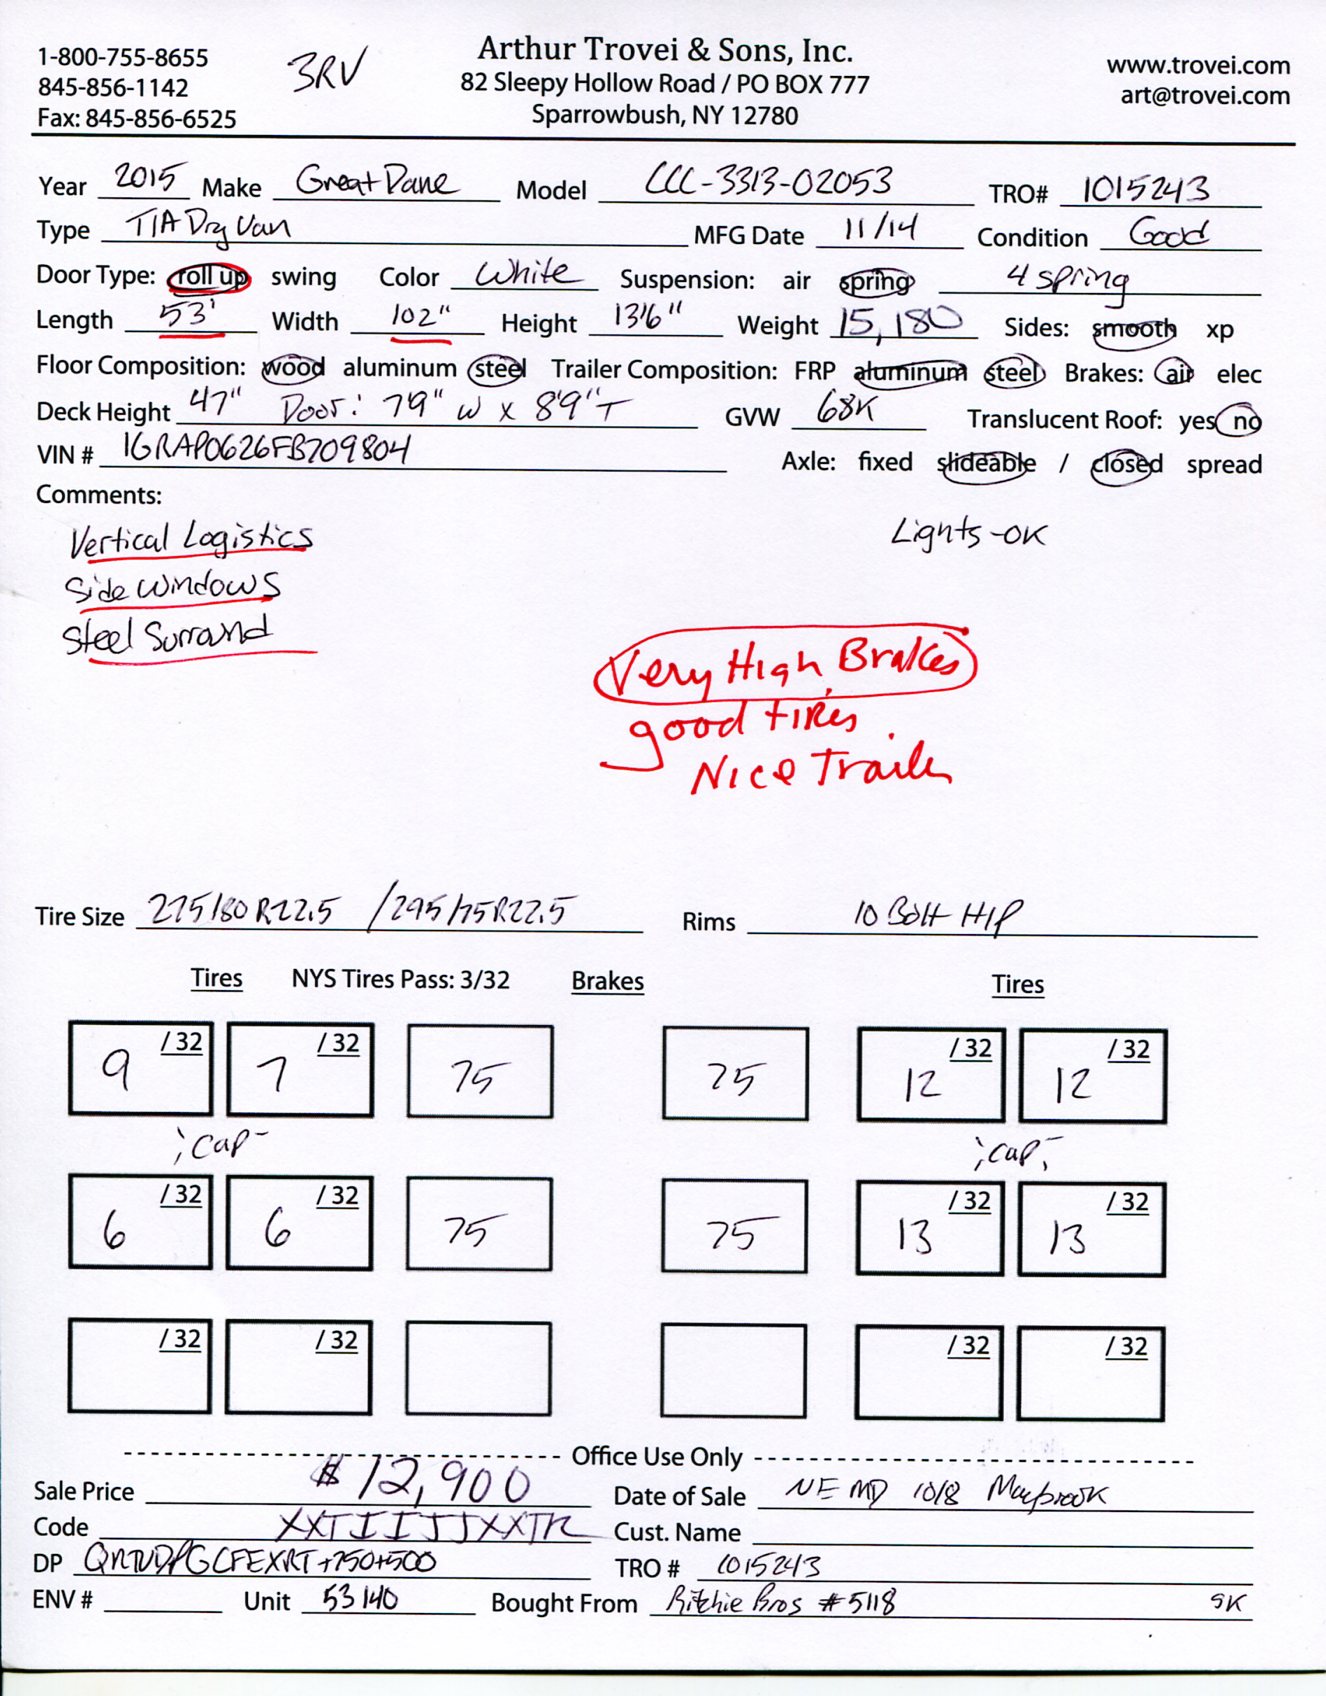 1-800-755-8655
845-856-1142
Fax: 845-856-6525
3RV
Arthur Trovei & Sons, Inc.
82 Sleepy Hollow Road / PO BOX 777
Sparrowbush, NY 12780
www.trovei.com
art@trovei.com
Year 2015 Make Great Dane Model CCC-3313-02053 TRO# 1015243
Type T/A Dry Van MFG Date 11/14 Condition Good
Door Type: roll up swing Color White Suspension: air spring 4 spring
Length 53' Width 102" Height 13'6" Weight 15,180 Sides: smooth xp
Floor Composition: wood aluminum steel Trailer Composition: FRP aluminum steel Brakes: air elec
Deck Height 47" Door: 7'9" W x 8'9" T GVW 68K Translucent Roof: yes no
VIN # 1GRAP0626FB709804 Axle: fixed slideable / closed spread
Comments:
Vertical Logistics
Lights-OK
Side Windows
Steel Surrand
Very High Brakes
good tires
Nice Trailer
Tire Size 275/80R22.5 /295/75R22.5 Rims 10 Bolt H/P
Tires NYS Tires Pass: 3/32 Brakes Tires
9 /32 7 /32 75 75 12 /32 12 /32
;cap- ;cap;
6 /32 6 /32 75 75 13 /32 13 /32
/32 /32 /32 /32
Office Use Only
Sale Price $12,900 Date of Sale NE MD 10/8 Maybrook
Code Cust. Name
DP +750+500 TRO # 1015243
ENV # Unit 53140 Bought From Ritchie Bros #5118 SK